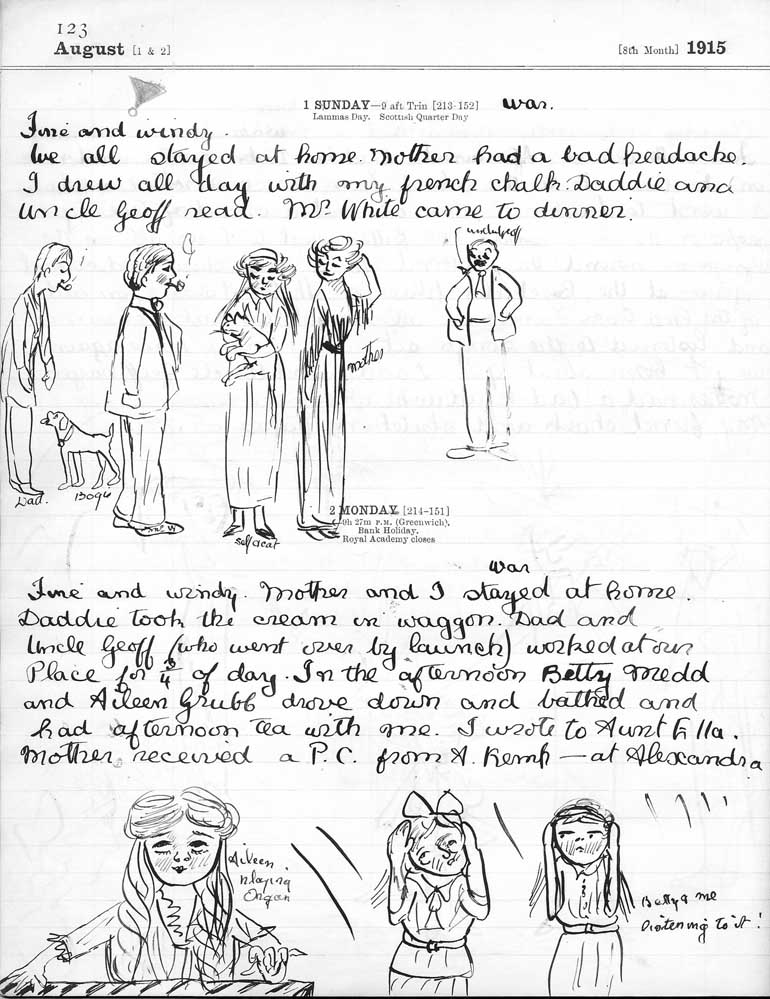 123
August [1 & 2] [8th Month] 1915
1 SUNDAY—9 aft Trin [213-152] war.
Lammas Day. Scottish Quarter Day
Fine and windy.
We all stayed at home. Mother had a bad headache.
I drew all day with my french chalk. Daddie and
Uncle Geoff read. Mr. White came to dinner.
uncle geoff
mother
Dad.
self & cat
2 MONDAY [214-151]
9h 27m P.M. (Greenwich).
Bank Holiday.
Royal Academy closes
war
Fine and windy. Mother and I stayed at home.
Daddie took the cream in waggon. Dad and
Uncle Geoff (who went over by launch) worked at our
Place for 3/4 of day. In the afternoon Betty Medd
and Aileen Grubb drove down and bathed and
had afternoon tea with me. I wrote to Aunt Ella.
Mother received a P.C. from A. Kemp — at Alexandra
Aileen
playing
Organ
Betty & me
listening to it!